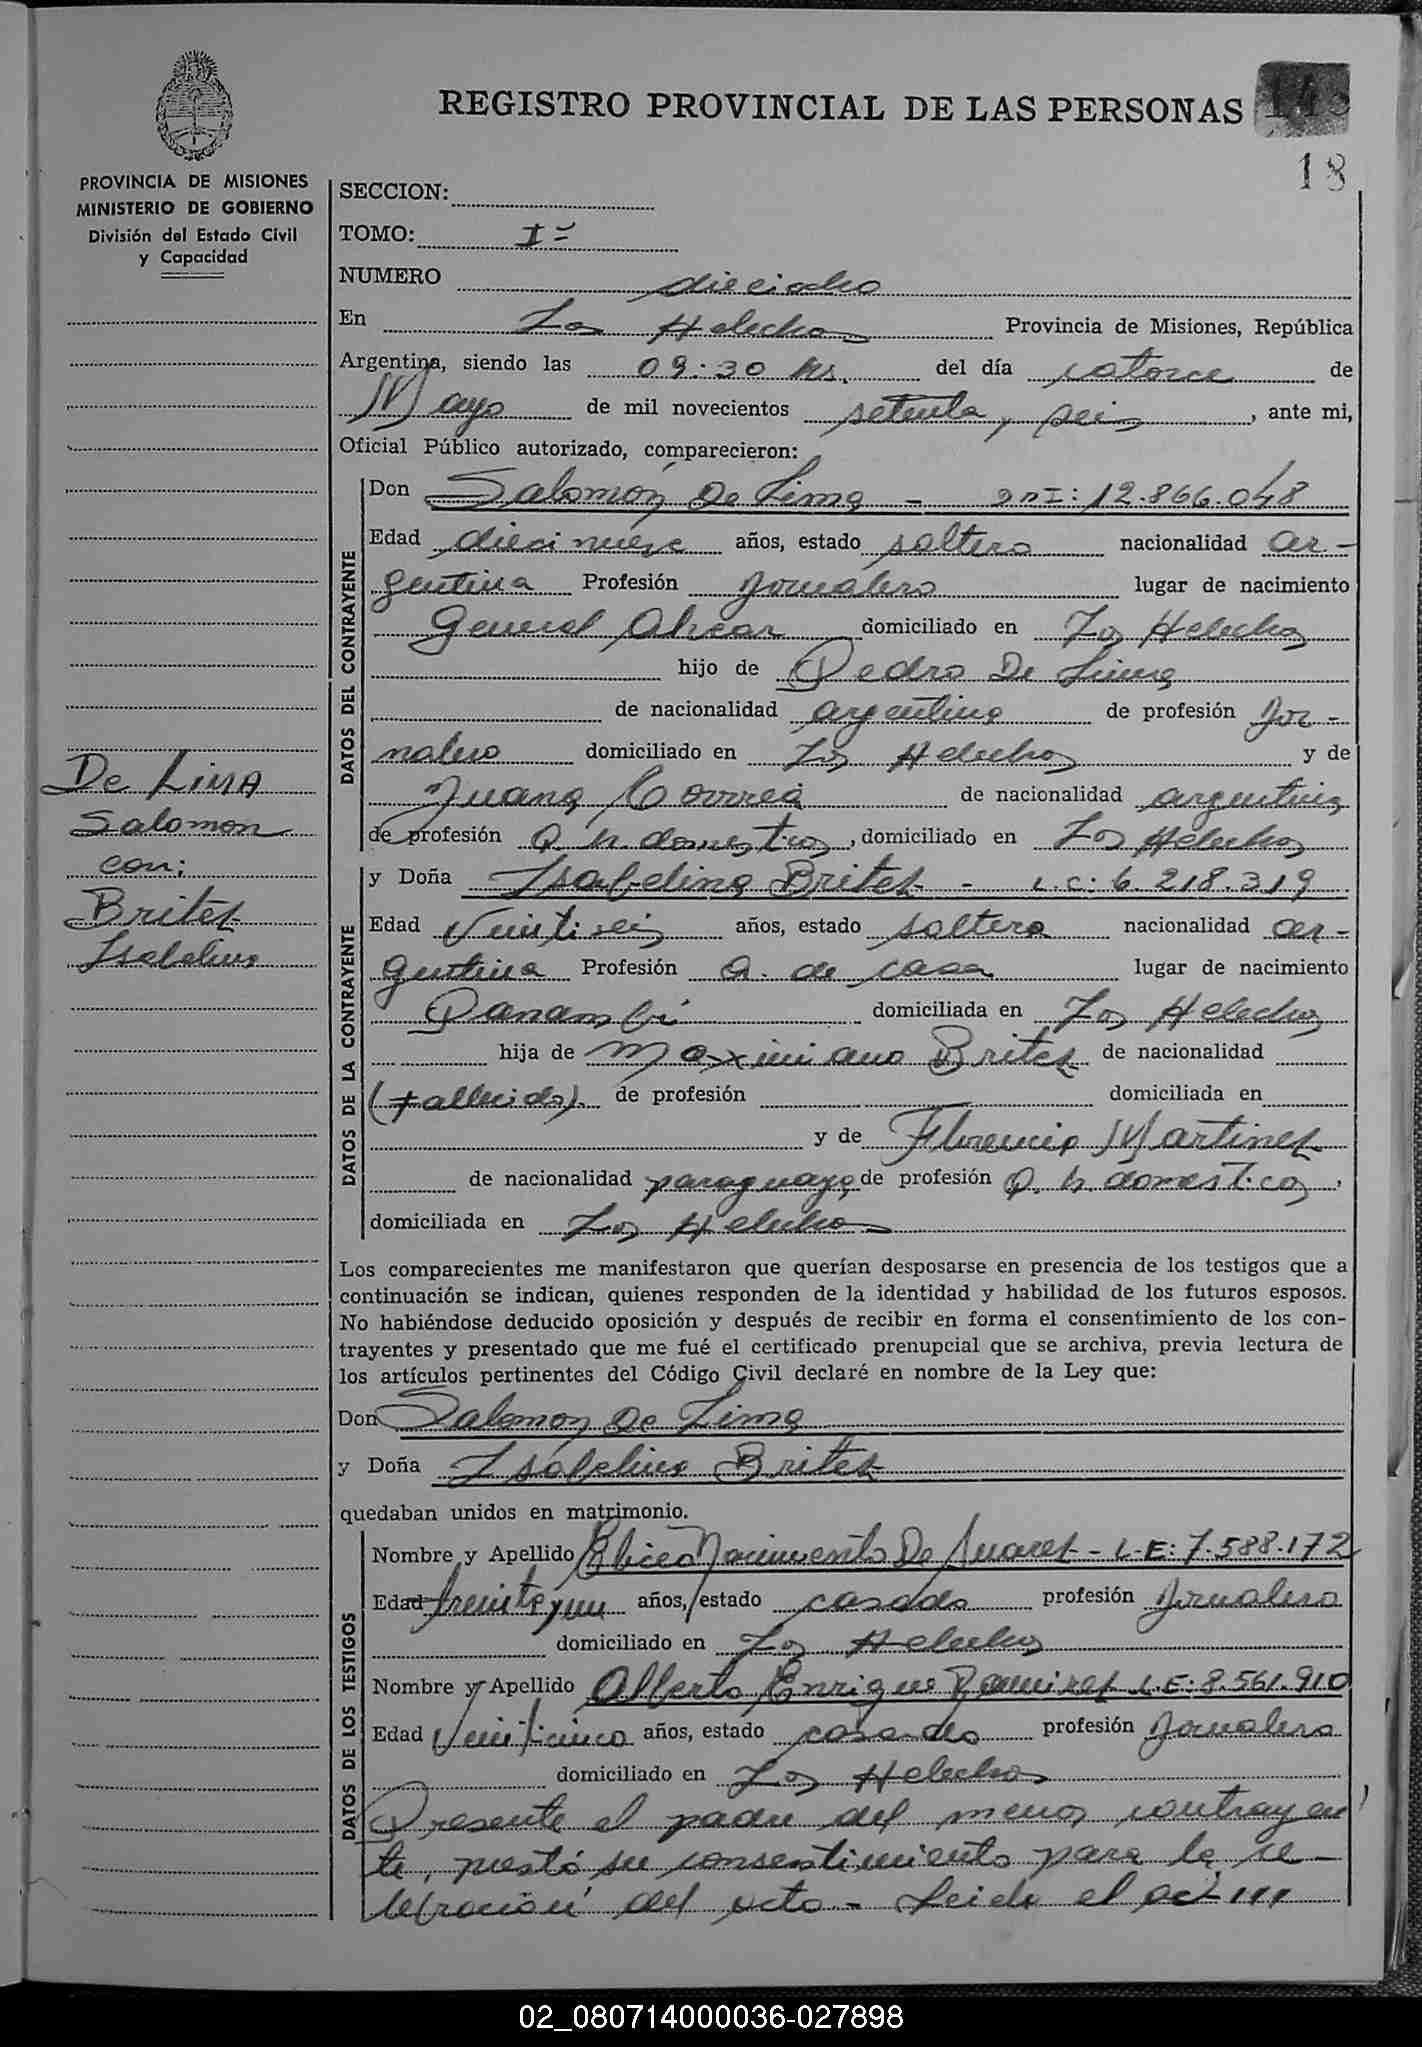 REGISTRO PROVINCIAL DE LAS PERSONAS
18
PROVINCIA DE MISIONES
MINISTERIO DE GOBIERNO
División del Estado Civil
y Capacidad
SECCION:
TOMO: Iº
NUMERO dieciocho
En Los Helechos Provincia de Misiones, República
Argentina, siendo las 09:30 hs. del día catorce de
Mayo de mil novecientos setenta y seis, ante mi,
Oficial Público autorizado, comparecieron:
DATOS DEL CONTRAYENTE
Don Salomón De Lima - DNI: 12.866.048
Edad diecinueve años, estado soltero nacionalidad ar-
gentina Profesión Jornalero lugar de nacimiento
General Alvear domiciliado en Los Helechos
hijo de Pedro De Lima
de nacionalidad argentina de profesión Jor-
nalero domiciliado en Los Helechos y de
Juana Correa de nacionalidad argentina
de profesión Q. h. domesticos, domiciliado en Los Helechos
De LIMA
Salomon
con:
Britez
Isabelina
DATOS DE LA CONTRAYENTE
y Doña Isabelina Britez - L.C: 6.218.319
Edad Veintiseis años, estado soltera nacionalidad ar-
gentina Profesión a. de casa lugar de nacimiento
Panambí domiciliada en Los Helechos
hija de Maximiano Britez de nacionalidad
(fallecido). de profesión domiciliada en
y de Florencia Martinez
de nacionalidad paraguaya de profesión Q. h. domesticos,
domiciliada en Los Helechos
Los comparecientes me manifestaron que querían desposarse en presencia de los testigos que a
continuación se indican, quienes responden de la identidad y habilidad de los futuros esposos.
No habiéndose deducido oposición y después de recibir en forma el consentimiento de los con-
trayentes y presentado que me fué el certificado prenupcial que se archiva, previa lectura de
los artículos pertinentes del Código Civil declaré en nombre de la Ley que:
Don Salomon De Lima
y Doña Isabelina Britez
quedaban unidos en matrimonio.
DATOS DE LOS TESTIGOS
Nombre y Apellido Nacimiento De Juarez - L-E: 7.588.172
Edad treinta y un años, estado casado profesión Jornalero
domiciliado en Los Helechos
Nombre y Apellido Alberto Enrique Ramirez L.E: 8.561.910
Edad Veinticinco años, estado casado profesión Jornalero
domiciliado en Los Helechos
Presente el padre del menor contrayen
te, prestó su consentimiento para la ce-
lebración del acto - Leida el act
02_080714000036-027898